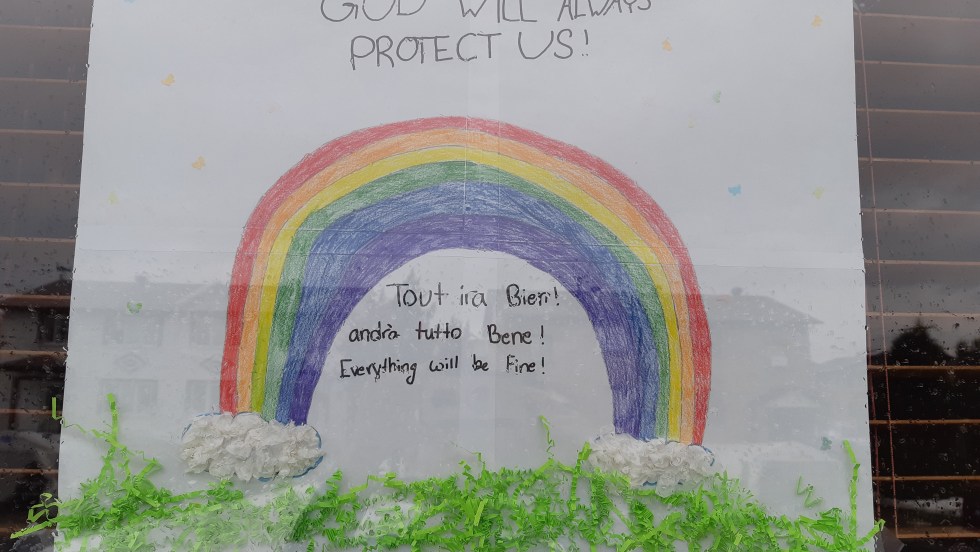 GOD WILL ALWAYS
PROTECT US!
Tout ira Bien!
andrà tutto Bene!
Everything will be Fine!